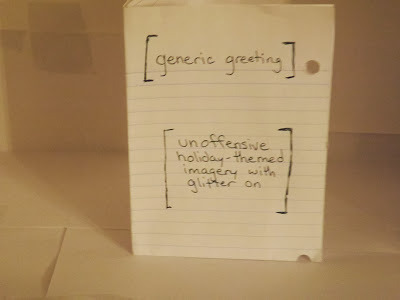 [generic greeting]
[unoffensive
holiday-themed
imagery with
glitter on]